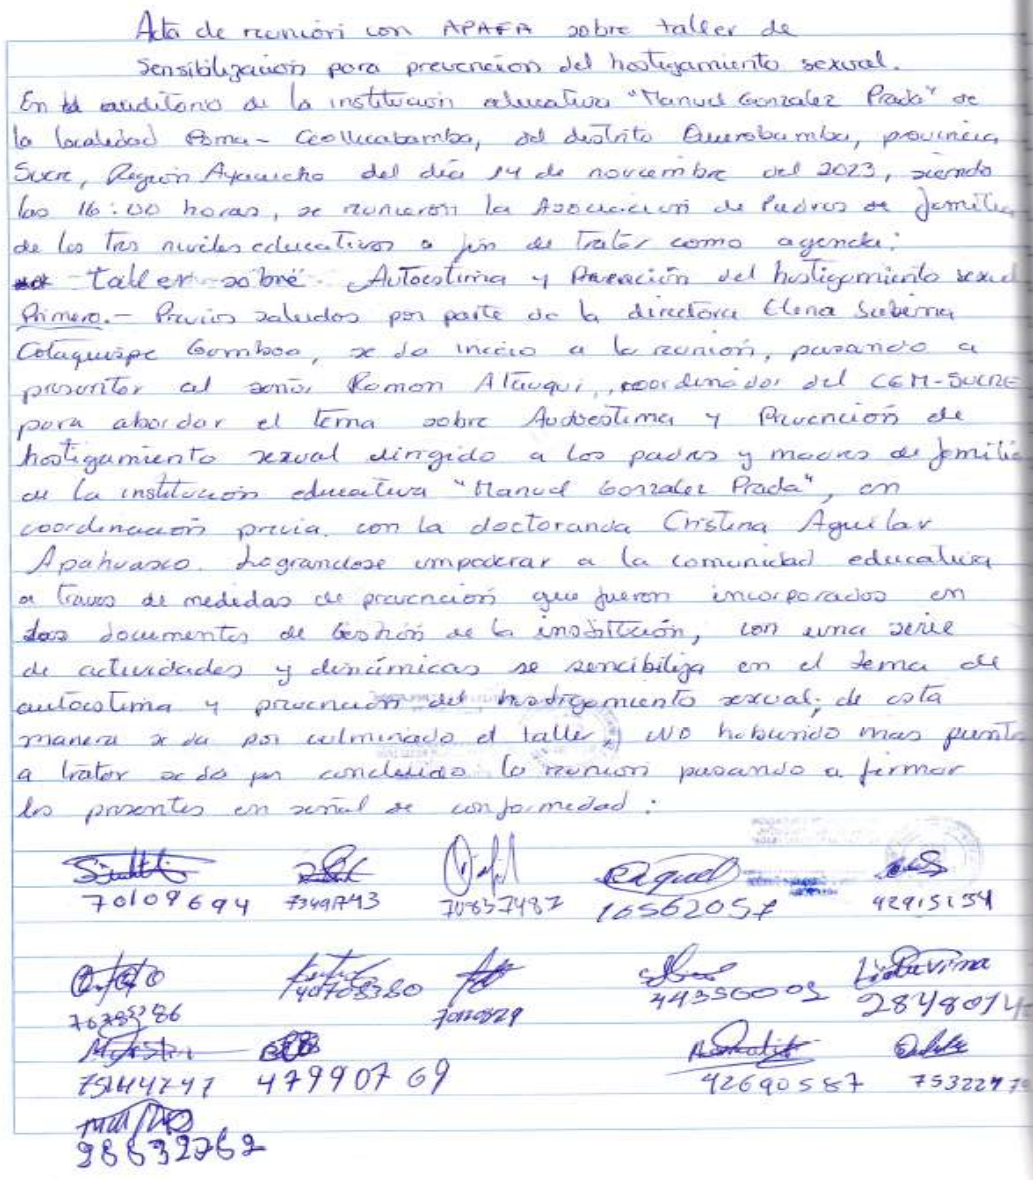 Acta de reunión con APAFA sobre taller de
sensibilización para prevención del hostigamiento sexual.
En el auditorio de la institución educativa "Manuel Gonzalez Prada" de
la localidad Poma - Ccollccabamba, del distrito Querobamba, provincia
Sucre, Región Ayacucho del día 14 de noviembre del 2023, siendo
las 16:00 horas, se reunieron la Asociación de Padres de familia
de los tres niveles educativos a fin de tratar como agenda:
- taller sobre. Autoestima y Prevención del hostigamiento sexual
Primero.- Previos saludos por parte de la directora Elena
Colaquispe Gamboa, se da inicio a la reunión, pasando a
presentar al señor Ramon Atauqui, coordinador del CEM-SUCRE
para abordar el tema sobre Autoestima y Prevención de
hostigamiento sexual dirigido a los padres y madres de familia
de la institución educativa "Manuel Gonzalez Prada", en
coordinación previa. con la doctoranda Cristina Aguilar
Apahuasco. Lograndose empoderar a la comunidad educativa
a traves de medidas de prevención que fueron incorporados en
los documentos de Gestión de la institución, con una serie
de actividades y dinámicas se sencibiliza en el tema de
autoestima y prevención del hostigamiento sexual; de esta
manera se da por culminado el taller, NO habiendo mas punto
a tratar se da por concluido la reunion pasando a firmar
los presentes en señal de conformidad:
Raquel
70109694 70837487 16562057 42915154
40708380 44356002 2848014
47990769 42690587 7532297